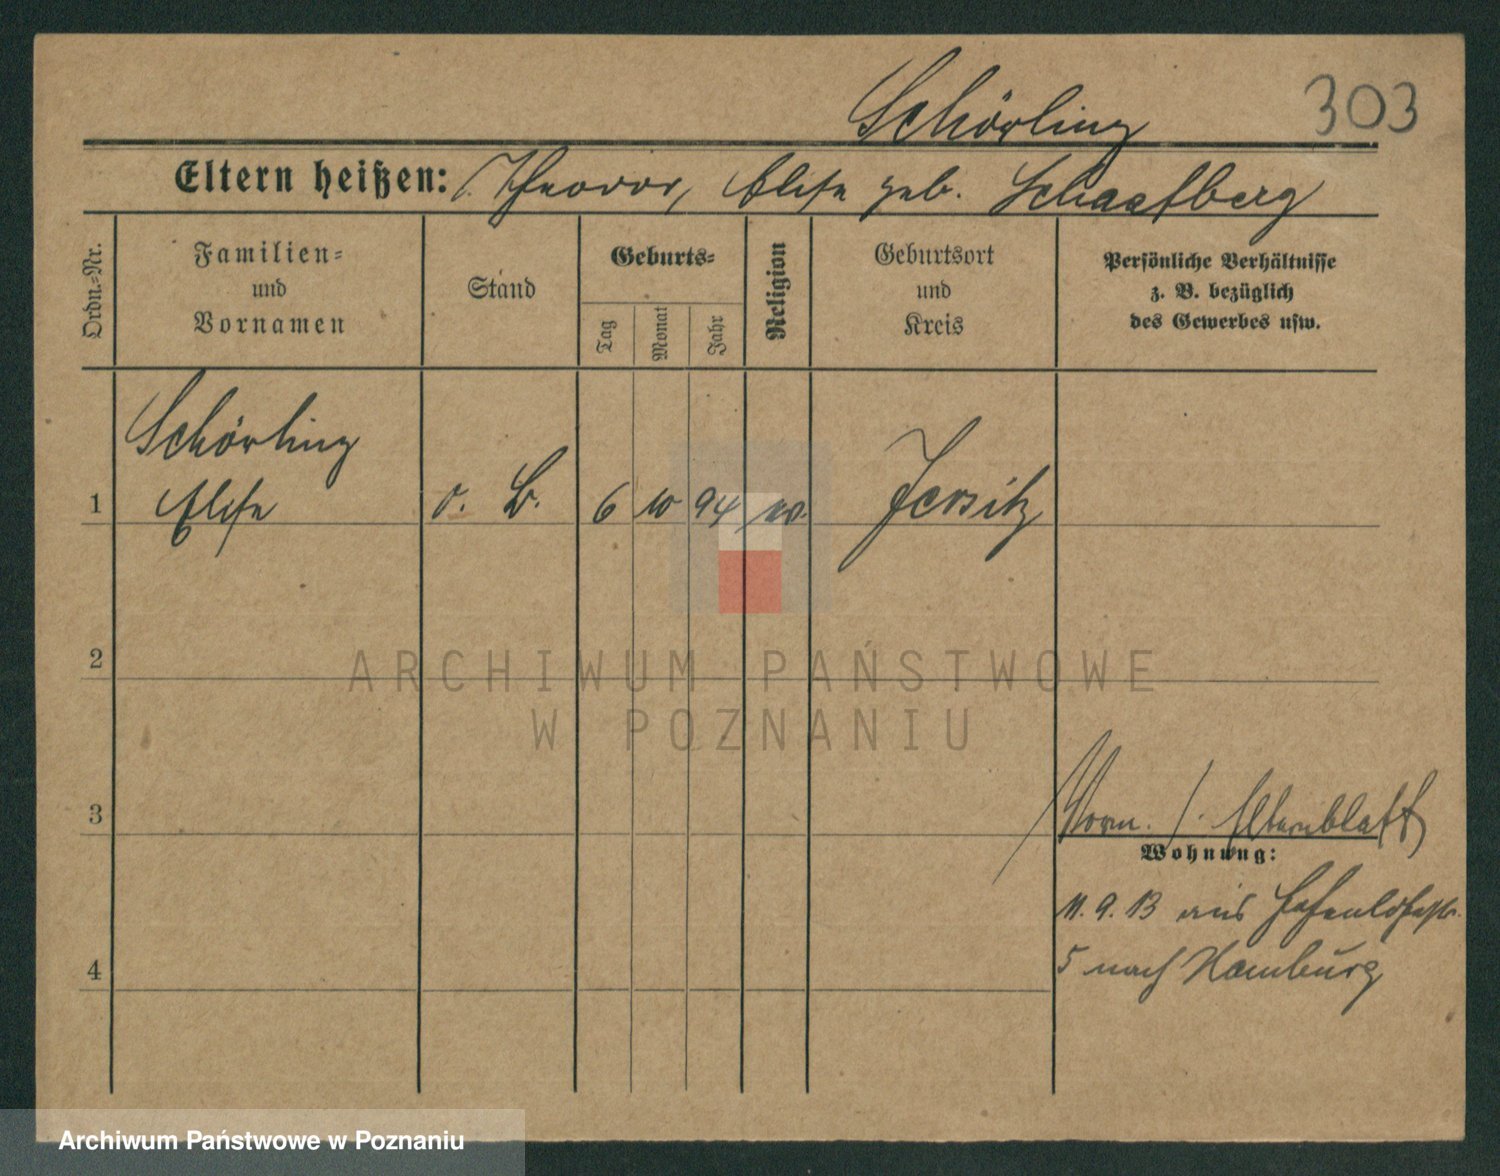 303
Schörling
Eltern heißen: Theodor, Elise geb. Schaafberg
Ordn.-Nr.
Familien-
und
Vornamen
Stand
Geburts-
Tag
Monat
Jahr
Religion
Geburtsort
und
Kreis
Persönliche Verhältnisse
z. B. bezüglich
des Gewerbes usw.
Schörling
1 Elise o. B. 6 10 94 ev. Jersitz
2
ARCHIWUM PAŃSTWOWE
W POZNANIU
3 Vorm. s. Elternblatt
Wohnung:
11.9.13 aus Hohenlohestr.
4 5 nach Hamburg
Archiwum Państwowe w Poznaniu